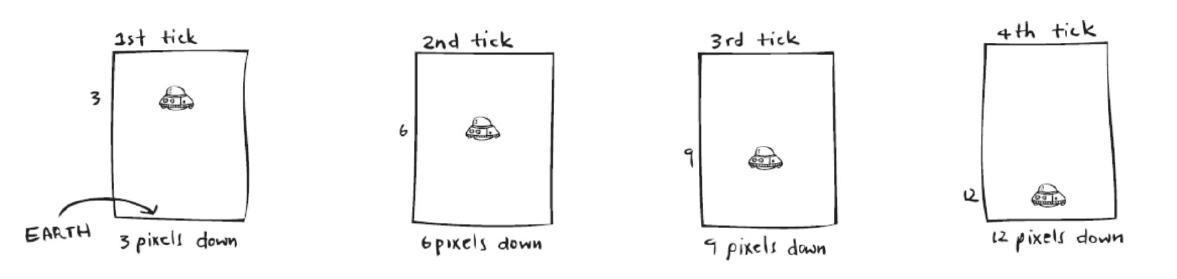 1st tick
3
EARTH
3 pixels down
2nd tick
6
6 pixels down
3rd tick
9
9 pixels down
4th tick
12
12 pixels down